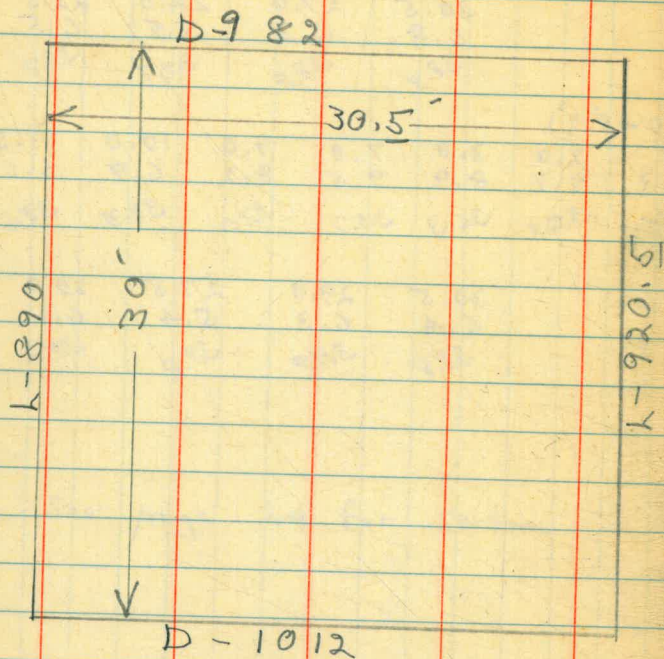 D-982
30.5'
30'
L-890
L-920.5
D-1012